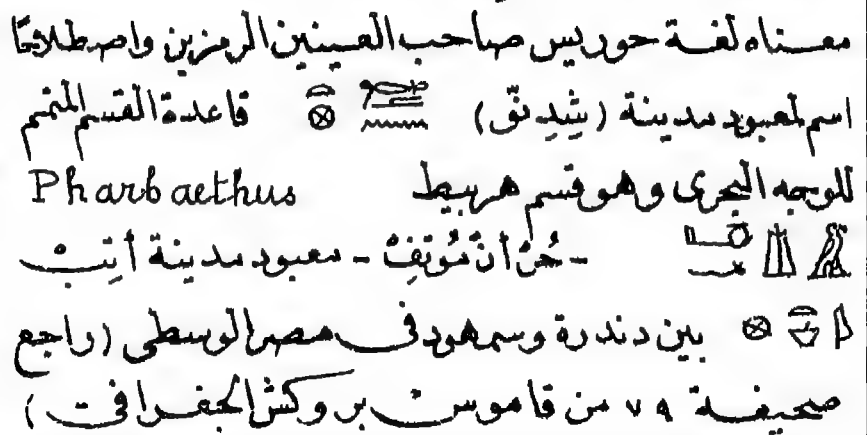 معناه لغة حوريس صاحب العينين الرمزين واصطلاحًا
اسم لمعبود مدينة (شِدِ نّق) قاعدة القسم المتمم
للوجه البحرى وهو قسم هربيط Pharbaethus
- حُرْ أنْ مُوتفِفْ - معبود مدينة أنِبْت
بين دندرة وسمهود فى مصر الوسطى (راجع
صحيفة ٧٩ من قاموس بروكش الجغرافى)